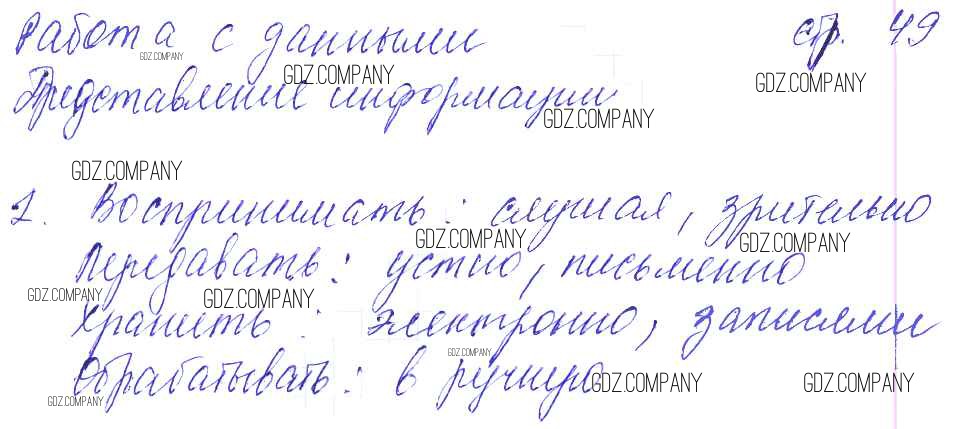 Работа с данными стр. 49
GDZ.COMPANY
GDZ.COMPANY GDZ.COMPANY
Представление информации
GDZ.COMPANY
GDZ.COMPANY
1. Воспринимать: слушая, зрительно
GDZ.COMPANY GDZ.COMPANY
Передавать: устно, письменно
GDZ.COMPANY GDZ.COMPANY
Хранить: электронно, записями
GDZ.COMPANY
Обрабатывать: в ручную
GDZ.COMPANY GDZ.COMPANY
GDZ.COMPANY